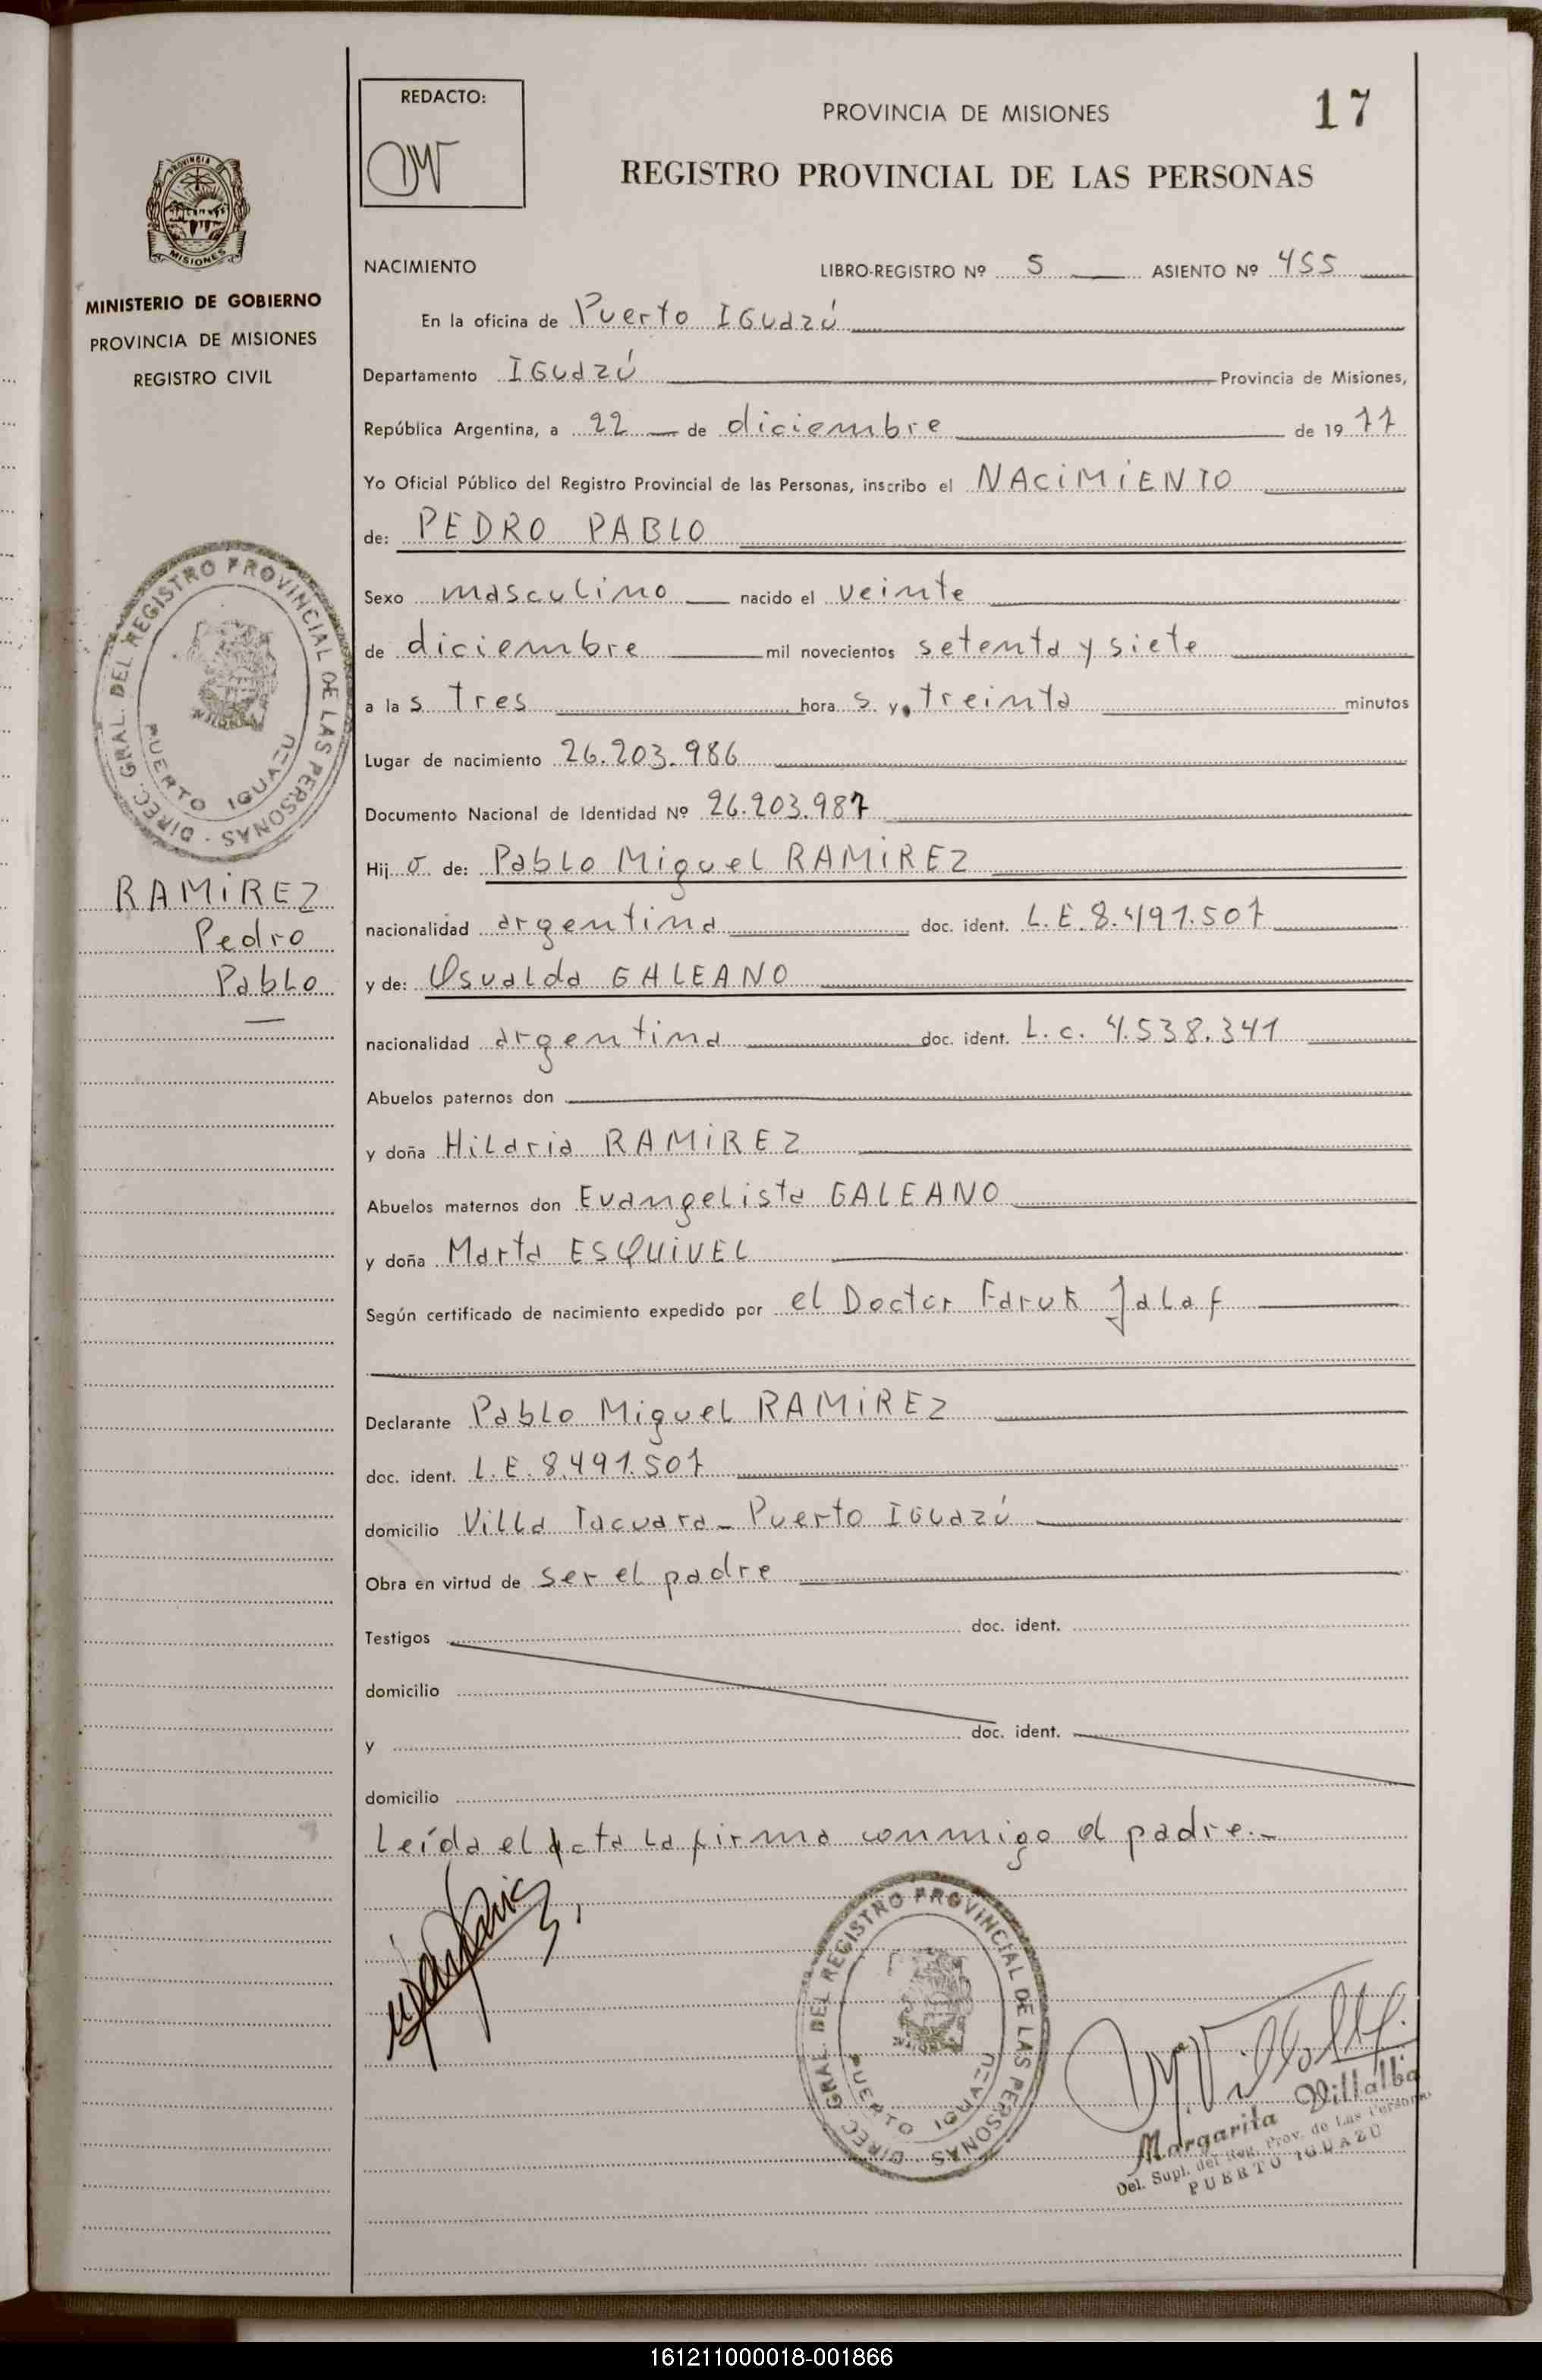 REDACTO:
PROVINCIA DE MISIONES
17
REGISTRO PROVINCIAL DE LAS PERSONAS
PROVINCIA
MISIONES
MINISTERIO DE GOBIERNO
PROVINCIA DE MISIONES
REGISTRO CIVIL
NACIMIENTO LIBRO-REGISTRO Nº 5 ASIENTO Nº 455
En la oficina de Puerto IGuazú
Departamento IGuazú Provincia de Misiones,
República Argentina, a 22 de diciembre de 1977
Yo Oficial Público del Registro Provincial de las Personas, inscribo el NACiMiENTO
de: PEDRO PABLO
Sexo masculino nacido el veinte
de diciembre mil novecientos setenta y siete
a las tres horas y treinta minutos
Lugar de nacimiento 26.203.986
Documento Nacional de Identidad Nº 26.203.987
Hijo de: Pablo Miguel RAMiREZ
nacionalidad argentina doc. ident. L.E. 8.491.507
y de: Osvalda GALEANO
nacionalidad argentina doc. ident. L.c. 4.538.341
Abuelos paternos don
y doña Hilaria RAMiREZ
Abuelos maternos don Evangelista GALEANO
y doña Marta ESQUiVEL
Según certificado de nacimiento expedido por el Doctor Faruk Jalaf
Declarante Pablo Miguel RAMiREZ
doc. ident. L.E. 8.491.507
domicilio Villa Tacuara - Puerto IGuazú
Obra en virtud de ser el padre
Testigos doc. ident.
domicilio
y doc. ident.
domicilio
Leída el acta la firma conmigo el padre.-
DIREC. GRAL. DEL REGISTRO PROVINCIAL DE LAS PERSONAS
PUERTO IGUAZU
RAMiREZ
Pedro
Pablo
DIREC. GRAL. DEL REGISTRO PROVINCIAL DE LAS PERSONAS
PUERTO IGUAZU
Margarita Villalba
Del. Supl. del Reg. Prov. de Las Personas
PUERTO IGUAZU
161211000018-001866